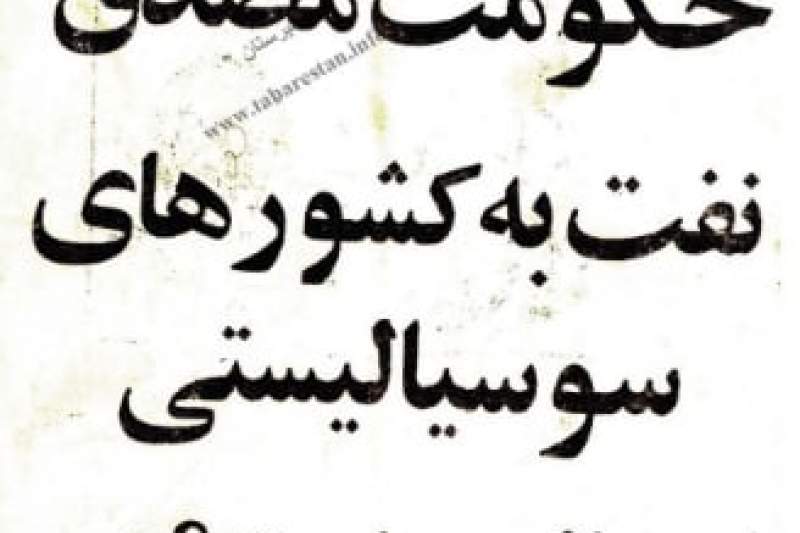 حکومت مصدق
تبرستان
www.tabarestan.info
نفت به کشورهای
سوسیالیستی